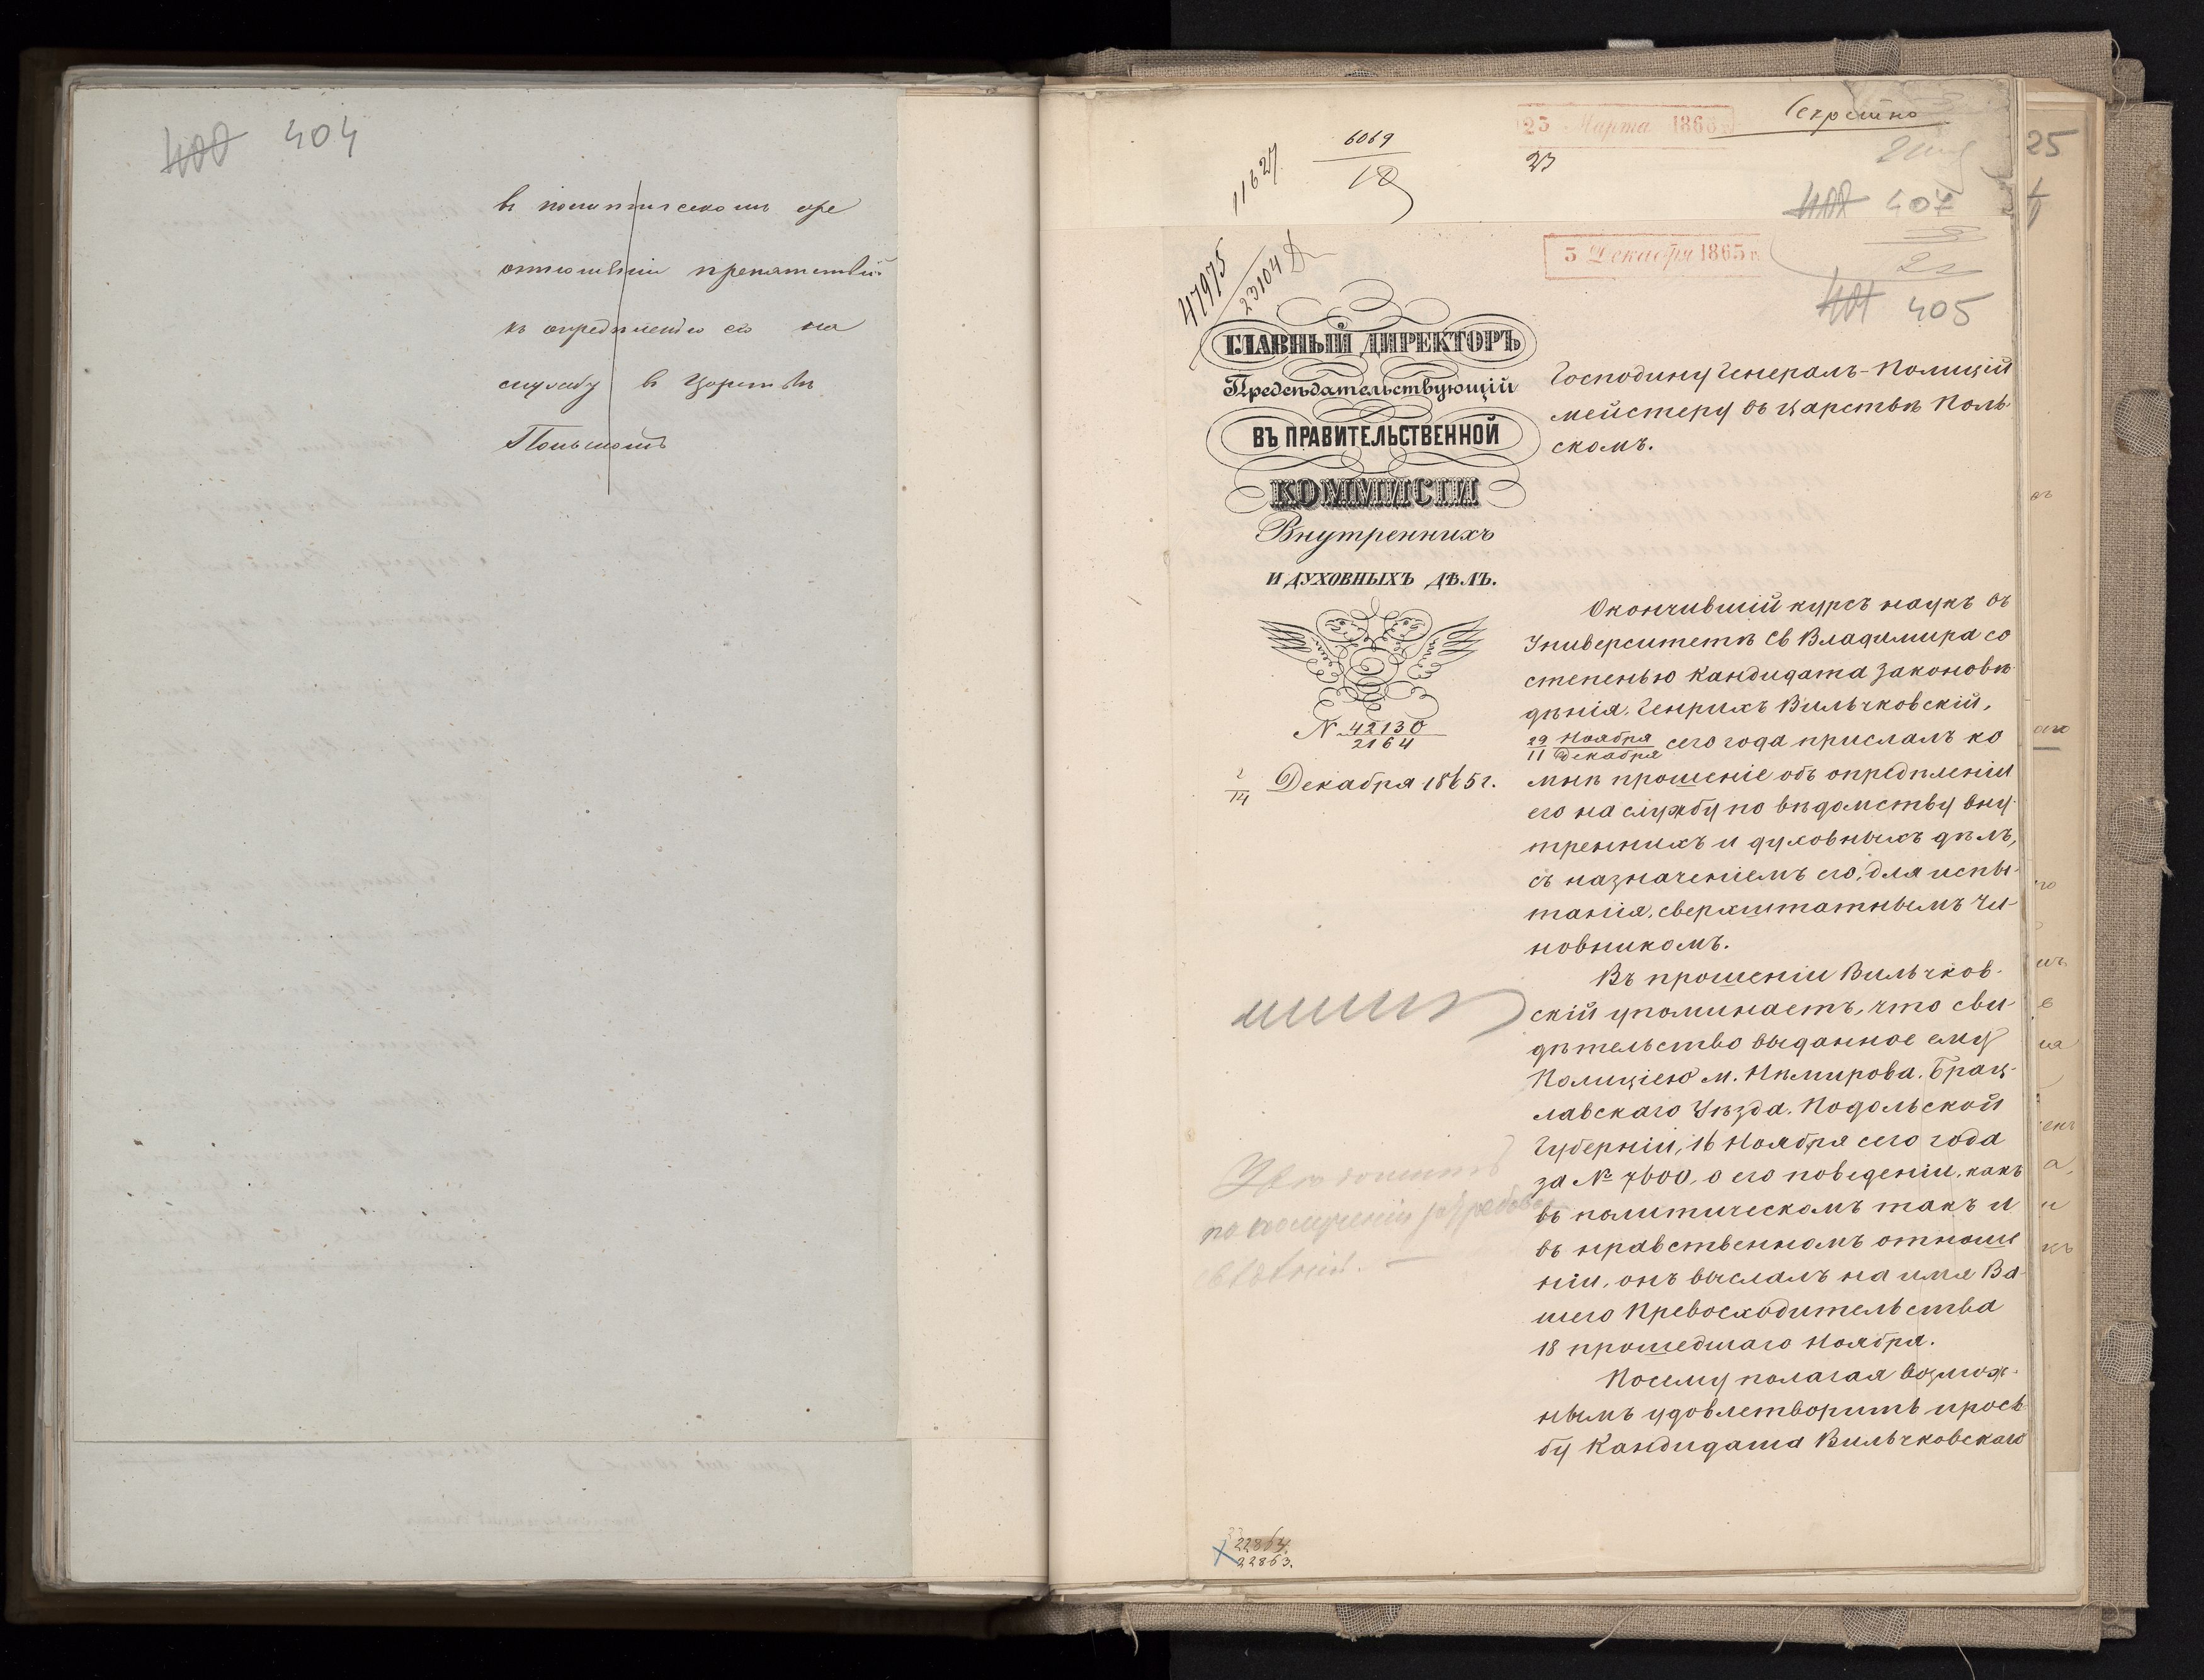 404
въ политическомъ
отношеніи препятствій
къ опредѣленію его на
службу въ Царствѣ
Польскомъ
Секретно
23 Марта 1866
6069
11627
23
407
25
3 Декабря 1865 г.
47975
23104
405
ГЛАВНЫЙ ДИРЕКТОРЪ
Предсѣдательствующій
ВЪ ПРАВИТЕЛЬСТВЕННОЙ
КОММИСІИ
Внутреннихъ
И ДУХОВНЫХЪ ДѢЛЪ.
N 42130
2164
2
14 Декабря 1865 г.
Господину Генералъ-Полицій
мейстеру въ Царствѣ Поль-
скомъ.
Окончившій курсъ наукъ въ
Университетѣ Св Владимира со
степенью Кандидата Законовѣ
дѣнія, Генрихъ Вильчковскій,
29 Ноября
11 Декабря сего года прислалъ ко
мнѣ прошеніе объ опредѣленіи
его на службу по вѣдомству вну-
треннихъ и духовныхъ дѣлъ,
съ назначеніемъ его, для испы-
танія, сверхштатнымъ чи-
новникомъ.
Въ прошеніи Вильчков-
скій упоминаетъ, что сви-
дѣтельство выданное ему
Полиціею м. Нѣмирова, Брац-
лавскаго Уѣзда, Подольской
Губерніи, 16 Ноября сего года
за № 7600, о его поведеніи, какъ
въ политическомъ такъ и
въ нравственномъ отноше
ніи, онъ выслалъ на имя Ва-
шего Превосходительства
18 прошедшаго Ноября.
Посему полагая возмож-
нымъ удовлетворить прось-
бу Кандидата Вильчковскаго
по полученіи
свѣдѣній.
22864.
22863.